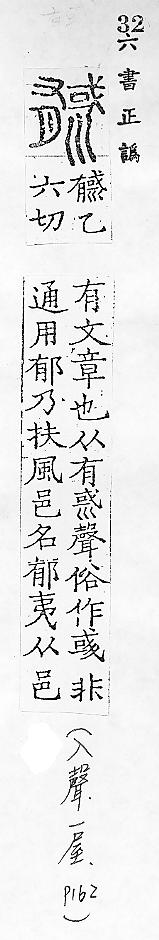 32
六書正譌
乙
六切
有文章也从有聲俗作彧非
通用郁乃扶風邑名郁夷从邑
(入聲一屋、P162)